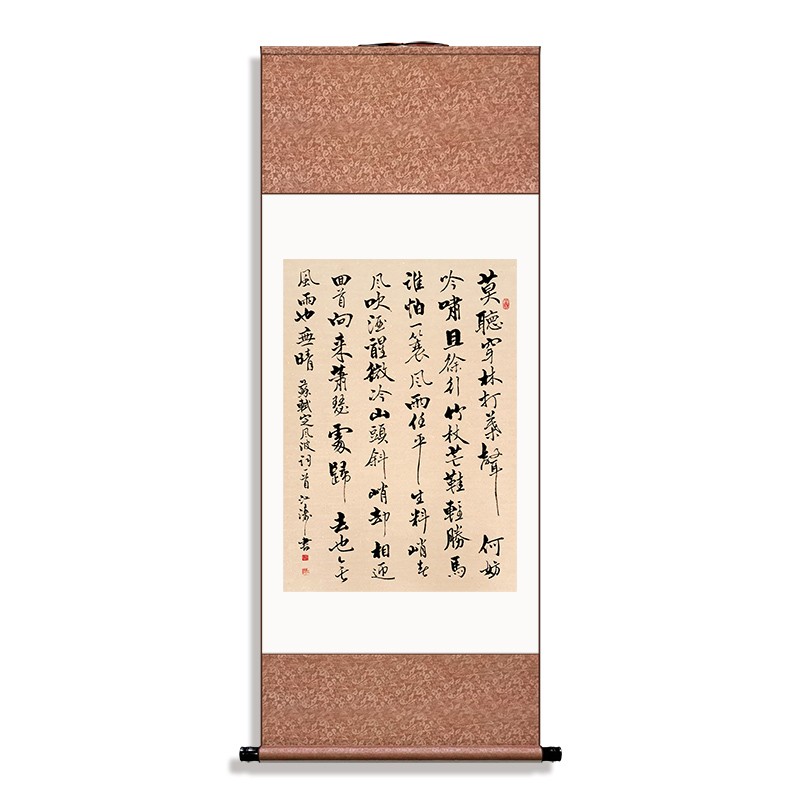 莫聽穿林打葉聲何妨
吟嘯且徐行竹杖芒鞋輕勝馬
谁怕一蓑风雨任平生料峭春
风吹酒醒微冷山頭斜峭却相迎
回首向来萧瑟處歸去也无
風雨也無晴 蘇軾定风波词一首江涛书